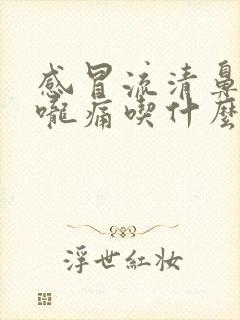 感冒流清鼻
嚨痛喫什麼
浮世紅妝